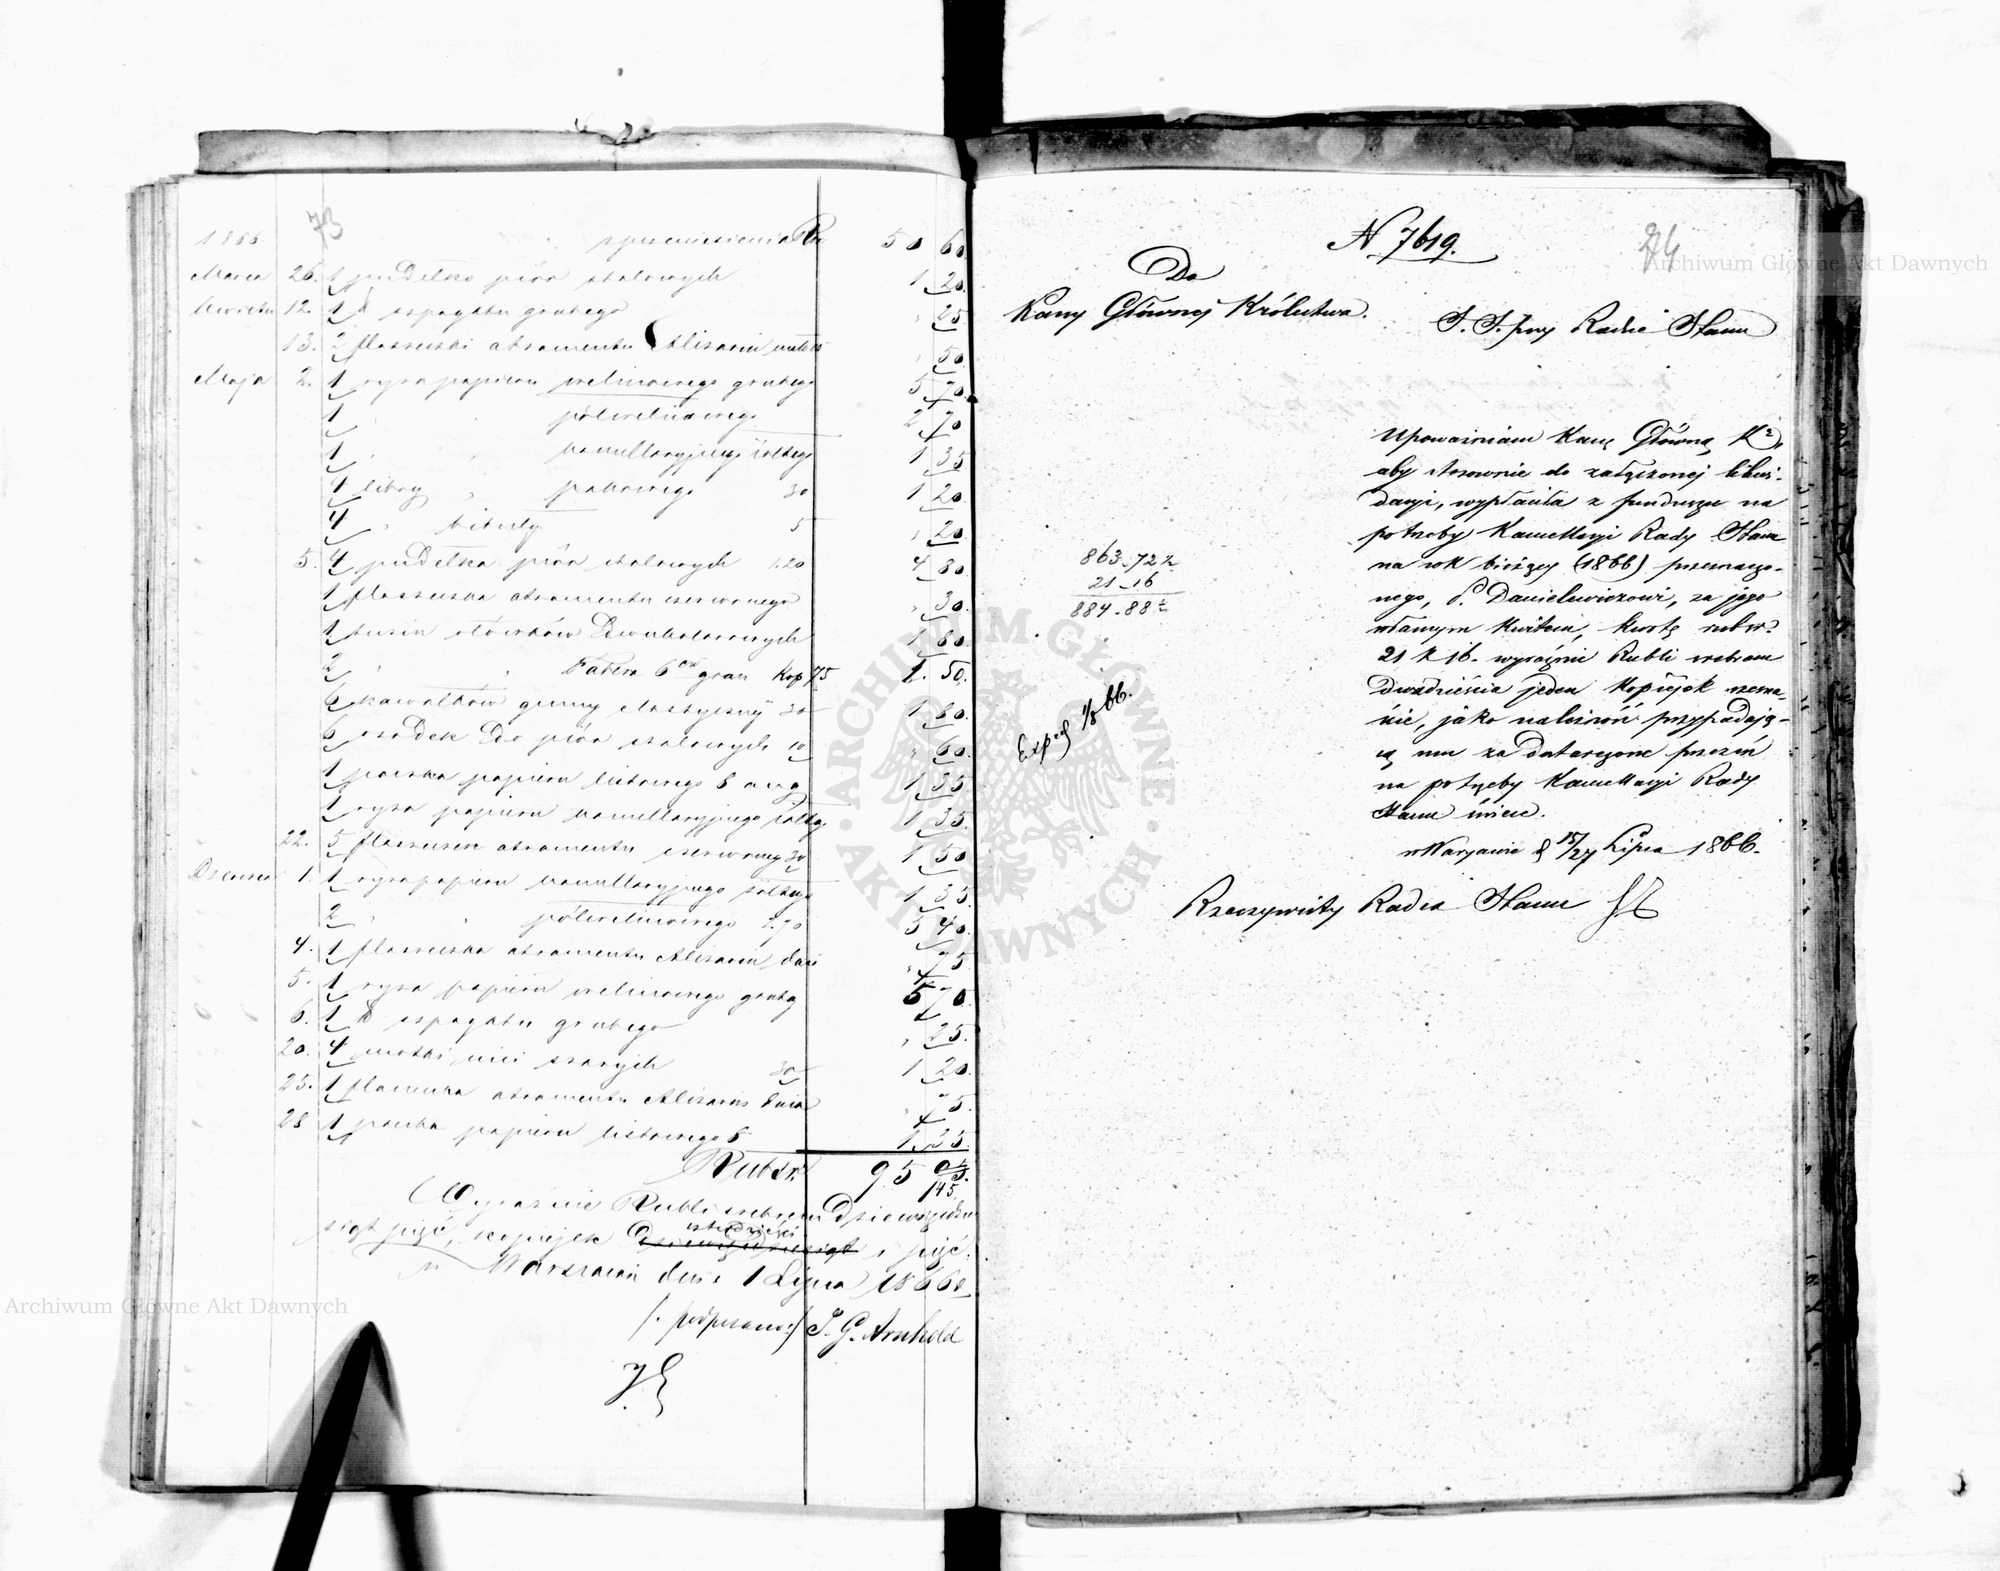 73
1866 z przeniesienia Rs 50 60
Marca 26. 1 pudełko piór stalowych 1 20.
Kwietn 12. 1 ℔ szpagatu grubego " 25
13. 2 flaszeczki atramentu Alizarin " 50
Maja 2. 1 ryza papieru welinowego grubego 5 70.
1 " " półwelinowego 2 70
1 " " kancellaryjnego żółtego 1 35
4 libry " pakowego 30 1 20
4 " bibuły 5 " 20.
5. 4 pudełka piór stalowych 1.20 4 80
1 flaszeczka atramentu czerwonego " 30.
1 tuzin ołówków dwukolorowych 1 80.
2 " " Fabera 6 gran kop 75 1. 50.
6 kawałków gumy elastycznej 30 1 80.
6 osadek do piór stalowych 10 " 60.
1 paczka papieru listowego 8 ang 1 35
1 ryza papieru kancellaryjnego żółteg 1 35.
22. 5 flaszeczek atramentu czerwoneg 30 1 50
Czerwca 1. 1 ryza papieru kancellaryjnego żółtego 1 35.
2 " " półwelinowego 2.70 5 40.
4. 1 flaszeczka atramentu Alizarin duża " 75.
5. 1 ryza papieru welinowego grubeg 5 70.
6. 1 ℔ szpagatu grubego " 25.
20. 4 motki nici szarych 30 1 20.
25. 1 flaszeczka atramentu Alizarin duża " 75.
28 1 paczka papieru listowego 8 1. 35.
Rubsr. 95 05.
145
Wyraźnie Rubli srebrem Dziewiędzie
siąt pięć, kopiejek czterdzieści i pięć.
w Warszawie dnia 1 Lipca 1866 r
/. podpisano:/ J. G. Arnhold
Archiwum Główne Akt Dawnych
N 7619.
74
Archiwum Główne Akt Dawnych
Do
Kassy Głównej Królestwa.
S. S. przy Radzie Stanu
Upoważniam Kassę Główną Kr.
aby stosownie do załączonej likwi-
dacyi, wypłaciła z funduszu na
potrzeby Kancellaryi Rady Stanu
na rok bieżący (1866) przeznaczo-
nego, P. Danielewiczowi, za jego
własnym kwitem, kwotę rubsr.
21 k 16. wyraźnie Rubli srebrem
Dwadzieścia jeden kopiejek szesna-
ście, jako należność przypadają-
cą mu za dostarczone przezeń
na potrzeby Kancellaryi Rady
Stanu świece.
863.72½
21_16
884.88½
Exped 1/8 66.
w Warszawie d 15/27 Lipca 1866.
Rzeczywisty Radca Stanu
ARCHIWUM GŁÓWNE · AKT DAWNYCH ·